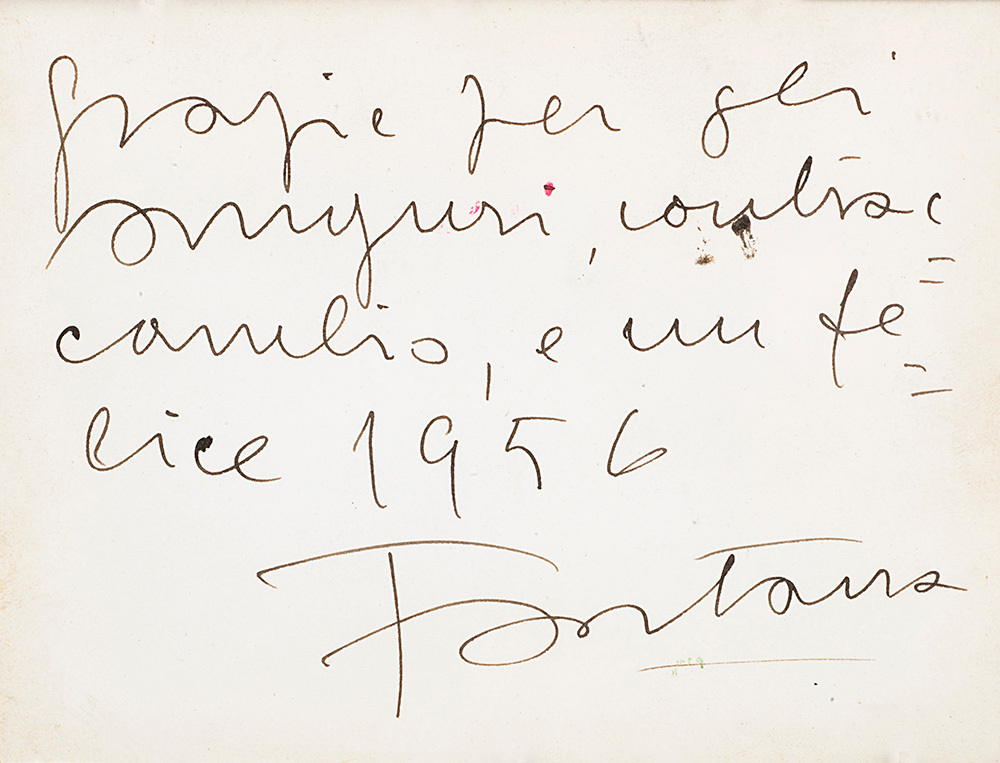 grazie per gli
auguri, contrac=
cambio, e un fe=
lice 1956
Fontana